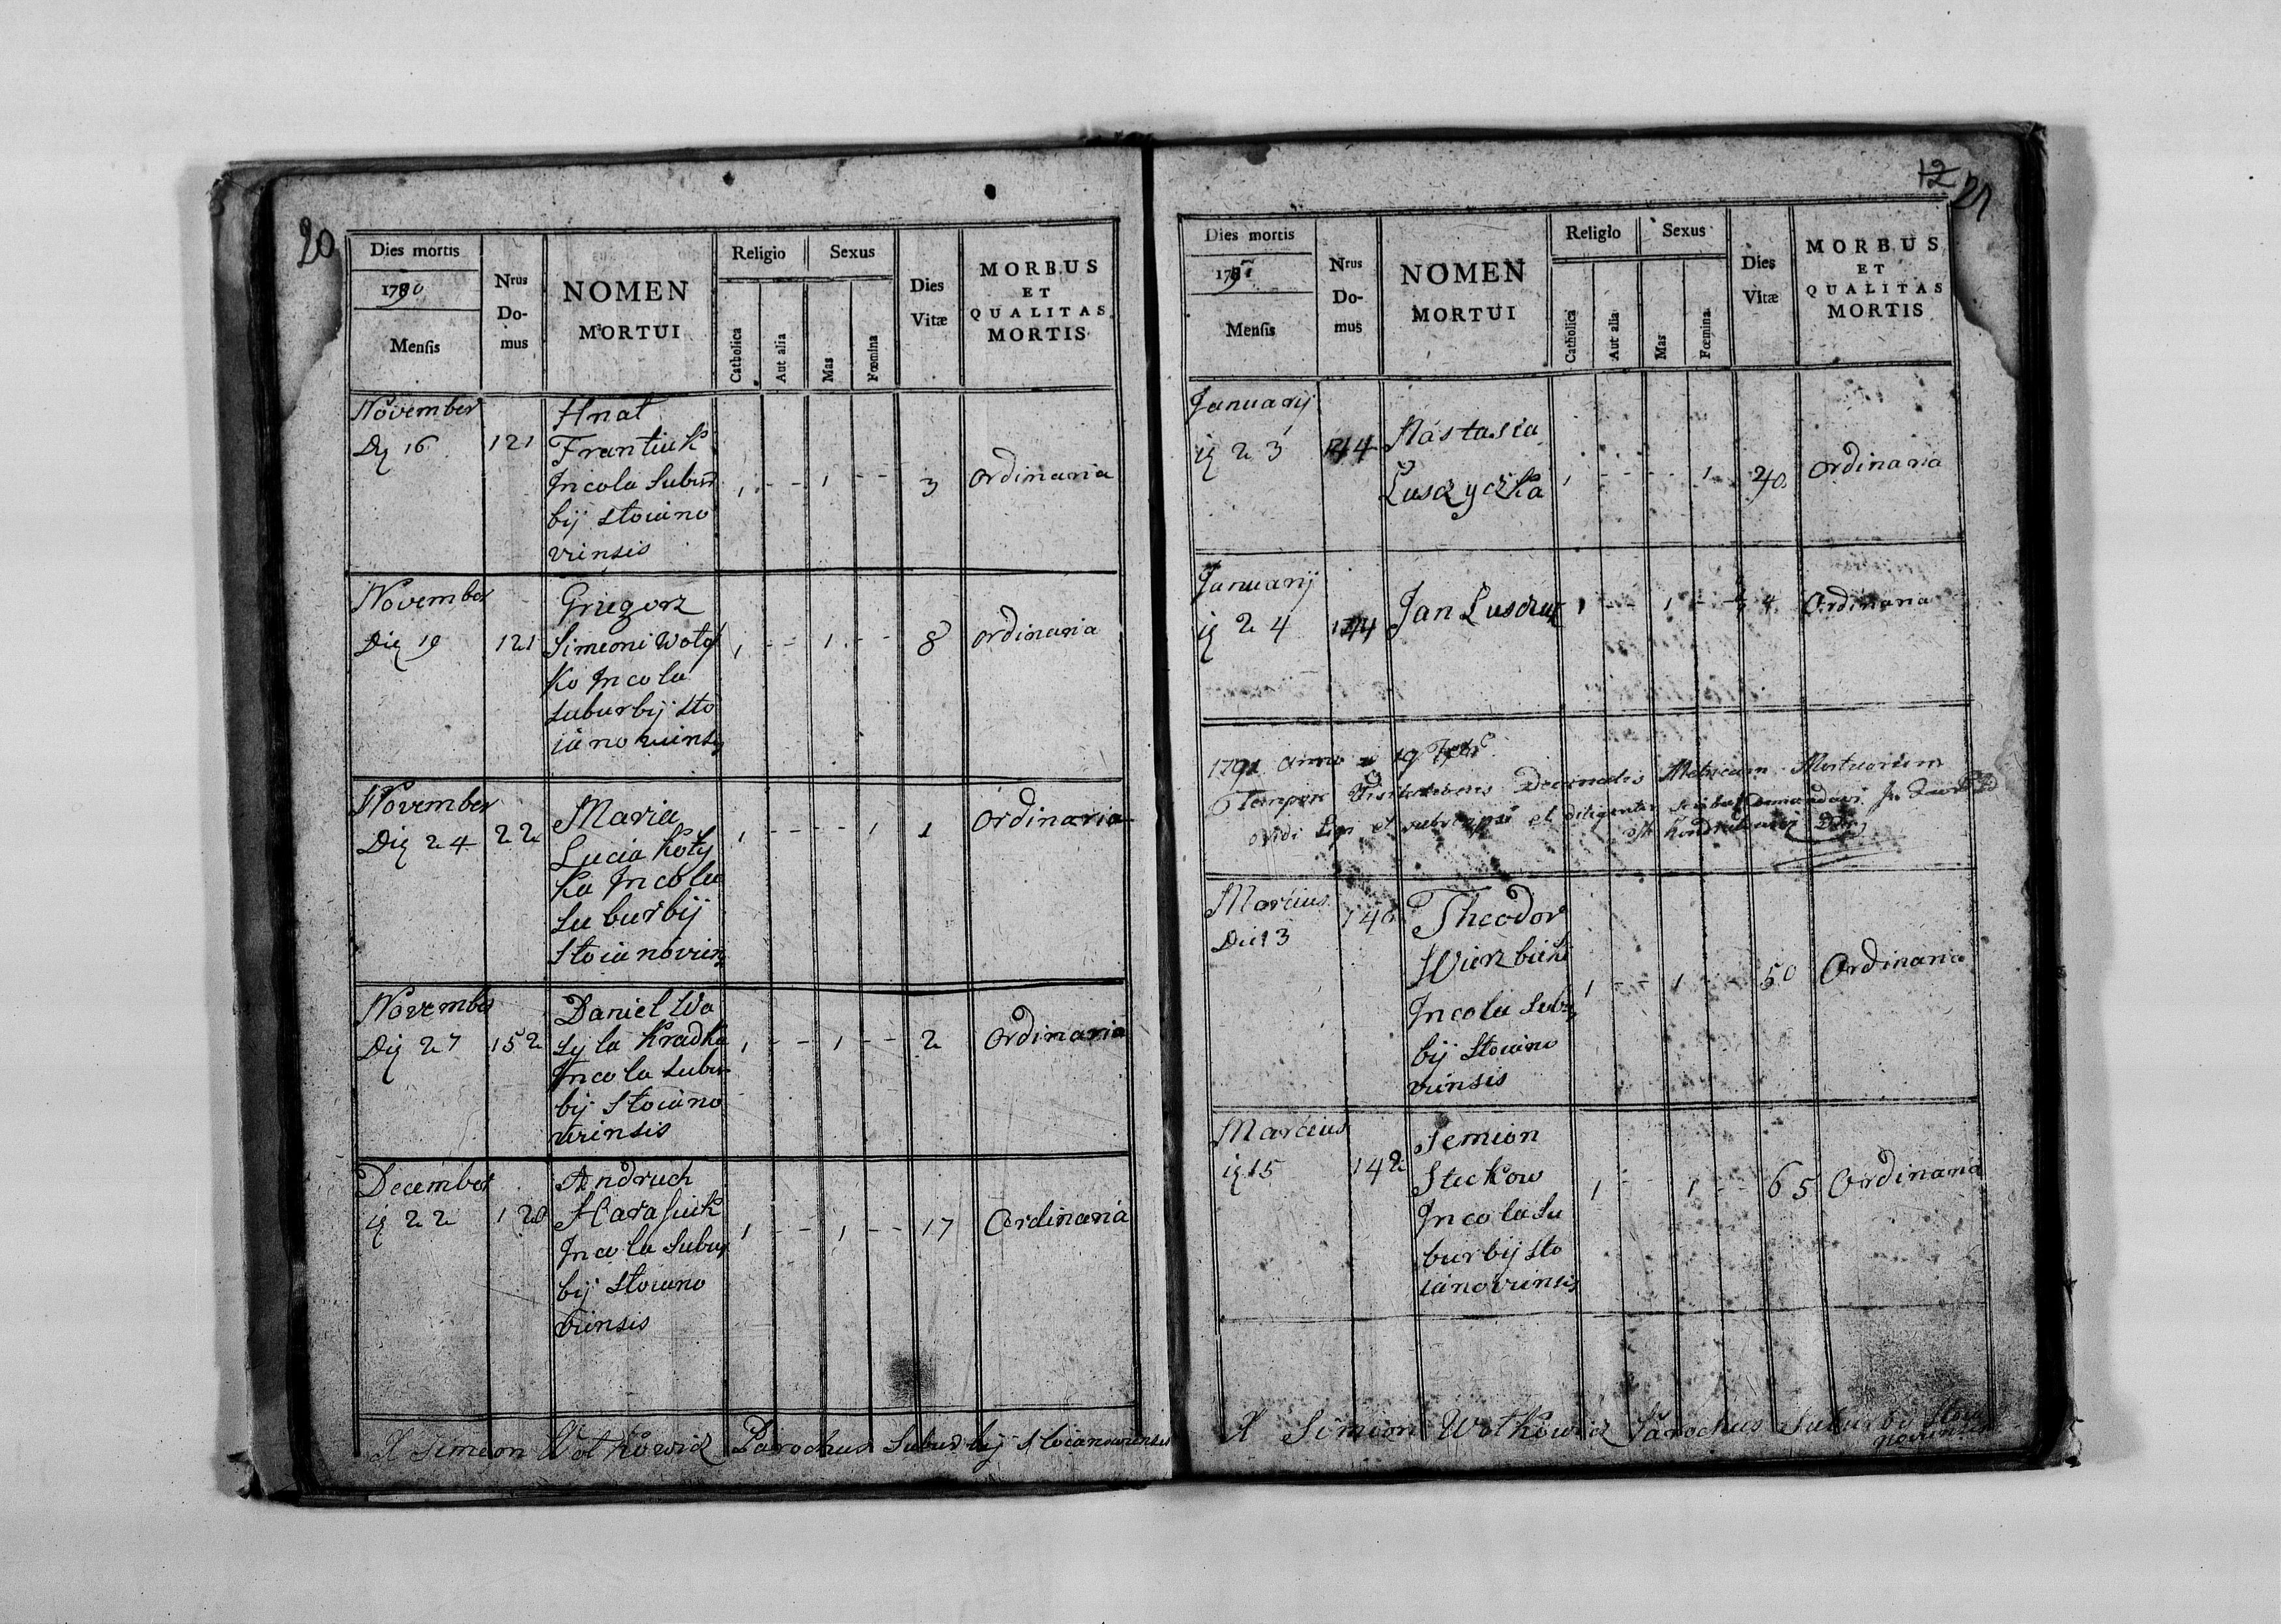 20
Dies mortis
1790
Menſis
Nrus
Do-
mus
NOMEN
MORTUI
Religio
Catholica
Aut alia
Sexus
Mas
Fœmina
Dies
Vitæ
MORBUS
ET
QUALITAS
MORTIS
November
Die 16
121
Hnat
Frantiuk
Incola Subur
bij Stoiano
viensis
1 - - 1 - - 3
Ordinaria
November
Die 19
121
Griegorz
Simeoni Woto
Ko Incola
Suburbij Sto
ianoviensis
1 - - 1 - - 8
Ordinaria
November
Die 24
22
Maria
Lucia Koty
Ka Incola
Suburbij
Stoianovien
1 - - - - 1 1
Ordinaria
November
Die 27
152
Daniel Wa
syla Kradka
Incola Subur
bij Stoiano
viensis
1 - - 1 - - 2
Ordinaria
December
ie 22
120
Andruch
Harasiuk
Incola Subur
bij Stoiano
viensis
1 - - 1 - - 17
Ordinaria
X Simeon Wotkowicz Parochus Suburbij Stoianoviensis
12 21
Dies mortis
1791
Menſis
Nrus
Do-
mus
NOMEN
MORTUI
Religio
Catholica
Aut alia
Sexus
Mas
Fœmina
Dies
Vitæ
MORBUS
ET
QUALITAS
MORTIS
Januarij
ie 23
144
Nastasia
Łuszczyczka
1 - - - - 1 - 40
Ordinaria
Januarij
ie 24
144
Jan Łuszczuk
1 - - 1 - - 4
Ordinaria
1791 anno 19
Tempore Visitationis Decanalis Metricam Mortuorum
vidi legi et subscripsi et diligenter scribi demandavi
Marcius
Die 13
140
Theodor
Wierzbicki
Incola Subur
bij Stoiano
viensis
1 - - 1 - - 50
Ordinaria
Marcius
ie 15
142
Semion
Steckow
Incola Su
burbij Sto
ianoviensis
1 - - 1 - - 65
Ordinaria
X Simeon Wotkowicz Parochus Suburbij Stoia
noviensis